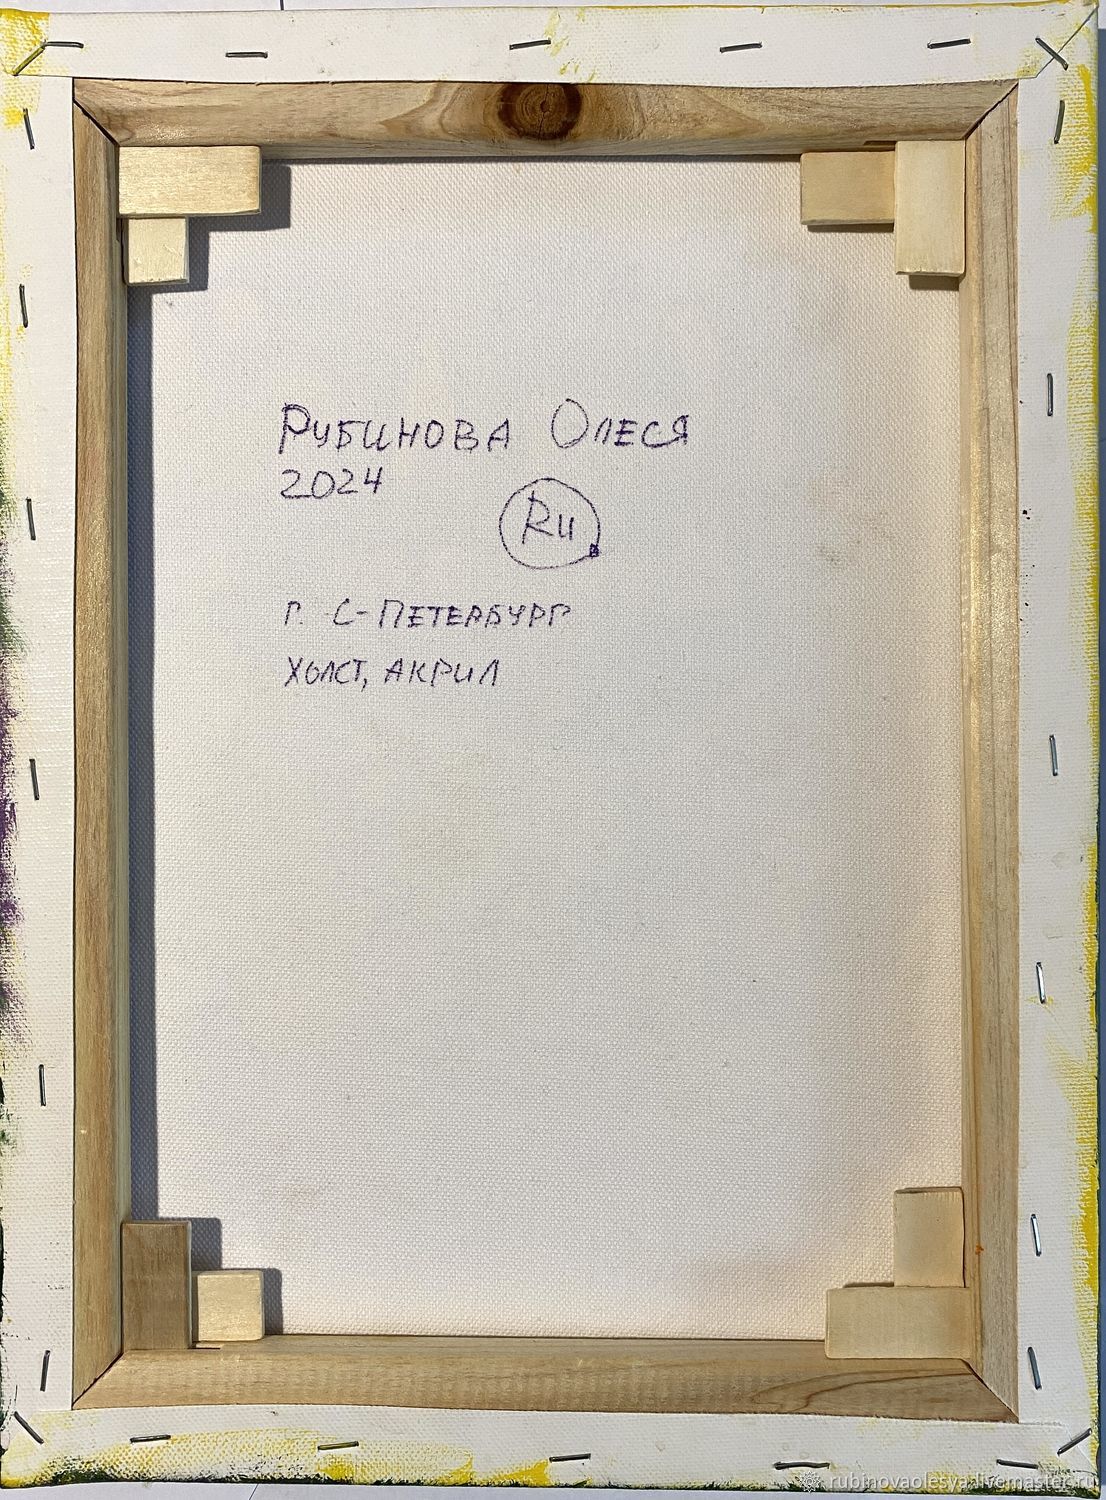 Рубинова Олеся
2024
Ru
г. С-Петербург
Холст, акрил
rubinovaolesya.livemaster.ru